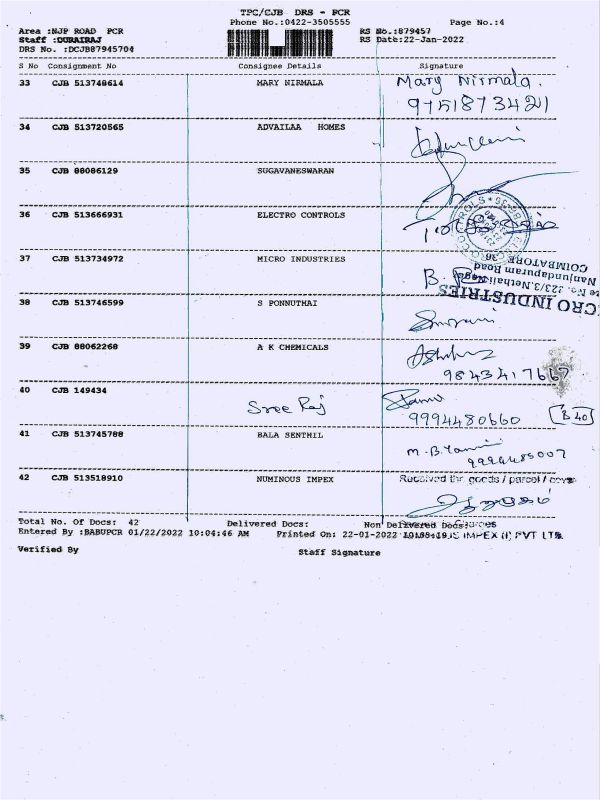 TPC/CJB DRS - PCR
Phone No.:0422-3505555 Page No.:4
Area :NJP ROAD PCR RS No.:879457
Staff :DURAIRAJ RS Date:22-Jan-2022
DRS No. :DCJB87945704
S No Consignment No Consignee Details Signature
33 CJB 513748614 MARY NIRMALA Mary Nirmala.
9751873421
34 CJB 513720565 ADVAILAA HOMES
35 CJB 88086129 SUGAVANESWARAN
36 CJB 513666931 ELECTRO CONTROLS
37 CJB 513734972 MICRO INDUSTRIES
COIMBATORE
Nanjundapuram Road
323/3, Nethaji Nagar
CRO INDUSTRIES
38 CJB 513746599 S PONNUTHAI
39 CJB 88062268 A K CHEMICALS
9843417667
40 CJB 149434 Sree Raj
9994480660 B 40
41 CJB 513745788 BALA SENTHIL M.B.
9994485007
42 CJB 513518910 NUMINOUS IMPEX Received the goods / parcel / cover
Total No. Of Docs: 42 Delivered Docs: Non Delivered Docs:
Entered By :BABUPCR 01/22/2022 10:04:46 AM Printed On: 22-01-2022 IMPEX (I) PVT LTD.
Verified By Staff Signature